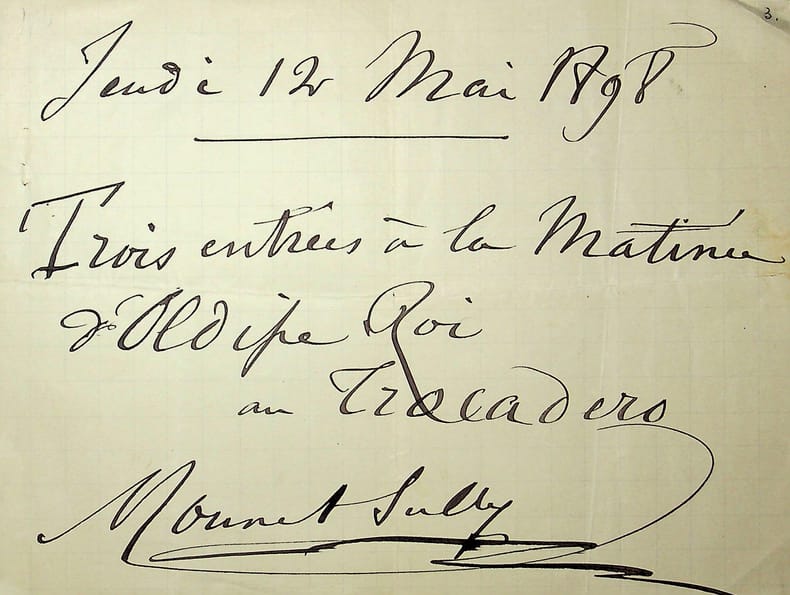 3.
Jeudi 12 Mai 1898
Trois entrées à la Matinée
d'Oedipe Roi
au Trocadero
Mounet Sully